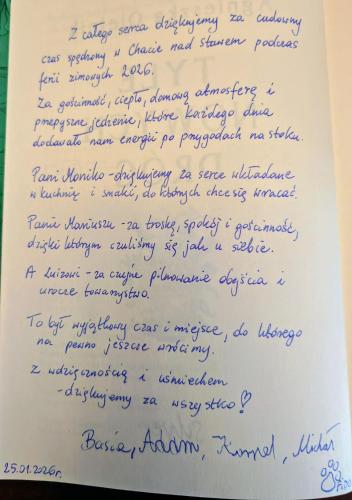 Z całego serca dziękujemy za cudowny
czas spędzony w Chacie nad stawem podczas
ferii zimowych 2026.
Za gościnność, ciepło, domową atmosferę i
przepyszne jedzenie, które każdego dnia
dodawało nam energii po przygodach na stoku.
Pani Moniko - dziękujemy za serce wkładane
w kuchnię i smaki, do których chce się wracać.
Panie Mariuszu - za troskę, spokój i gościnność,
dzięki którym czuliśmy się jak u siebie.
A Luizowi - za czujne pilnowanie obejścia i
urocze towarzystwo.
To był wyjątkowy czas i miejsce, do którego
na pewno jeszcze wrócimy.
Z wdzięcznością i uśmiechem
- dziękujemy za wszystko!
Basia, Adam, Kornel, Michał
25.01.2026r.